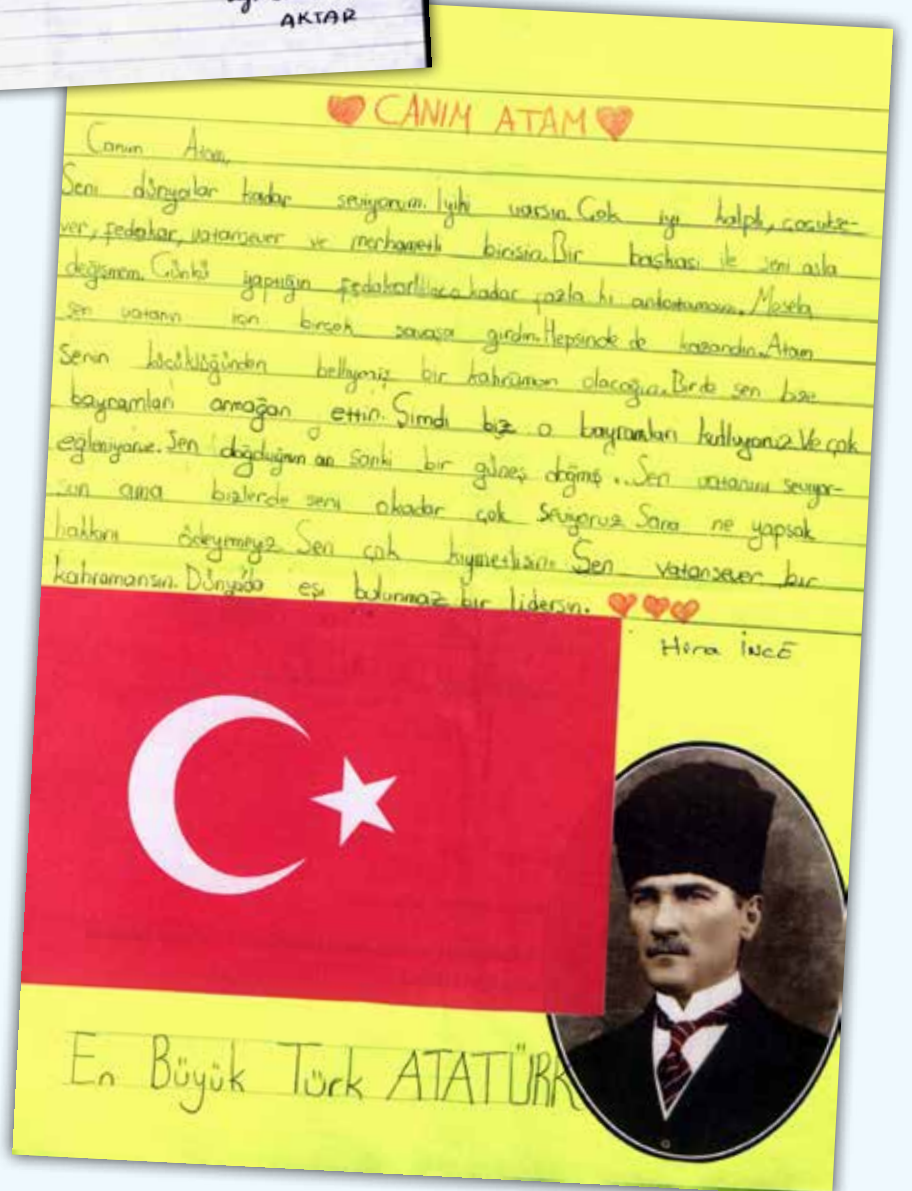 AKTAR
CANIM ATAM
Canım Atam,
Seni dünyalar kadar seviyorum. İyiki varsın. Çok iyi kalpli, çocukse-
ver, fedakar, vatansever ve merhametli birisin. Bir başkası ile seni asla
değişmem. Çünkü yaptığın kadar fazla ki anlatamam. Mesela
sen vatanın için birçok savaşa girdin. Hepsinde de kazandın. Atam
Senin küçüklüğünden belliymiş bir kahraman olacağın. Birde sen bize
bayramları armağan ettin. Şimdi biz o bayramları kutluyoruz. Ve çok
eğleniyoruz. Sen doğduğun an sanki bir güneş doğmuş.. Sen vatanını seviyor-
sun ama bizlerde seni okadar çok seviyoruz. Sana ne yapsak
hakkını ödeyemeyiz. Sen çok kıymetlisin. Sen vatansever bir
kahramansın. Dünyada eşi bulunmaz bir lidersin.
Hira İNCE
En Büyük Türk ATATÜRK